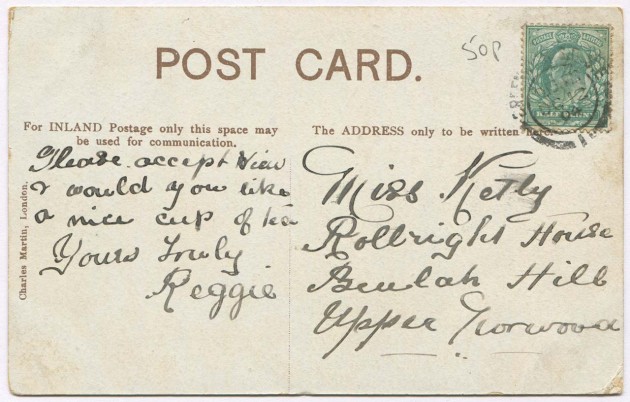 POST CARD.
50P
POSTAGE REVENUE
HALFPENNY
For INLAND Postage only this space may
be used for communication.
The ADDRESS only to be written here.
Charles Martin, London.
Please accept View
& would you like
a nice cup of tea
Yours truly
Reggie
Miss Kelly
Rollright House
Beulah Hill
Upper Norwood